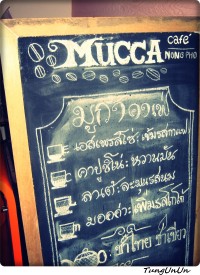 MUCCA café
NONG PHO
มูก้าคาเฟ่
เอสเพรสโซ่: เข้มรสกาแฟ
คาปูชิโน่: หวานมัน
ลาเต้: ละมุนรสนม
มอคค่า: เพิ่มรสโกโก้
ชาไทย ชาเขียว
TungUnUn